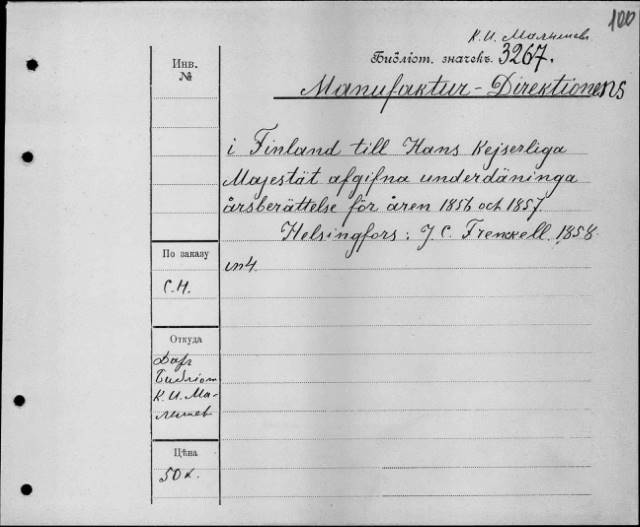 100
К. И. Малышев
Библіот. значекъ. 3267.
Инв.
№
Manufaktur-Direktionens
i Finland till Hans Kejserliga
Majestät afgifna underdåninga
årsberättelse för åren 1856 och 1857.
Helsingfors: J. C. Frenckell. 1858.
По заказу
in 4.
С.Н.
Откуда
Даръ
Библіот
К. И. Ма-
лышев
Цѣна
50 к.